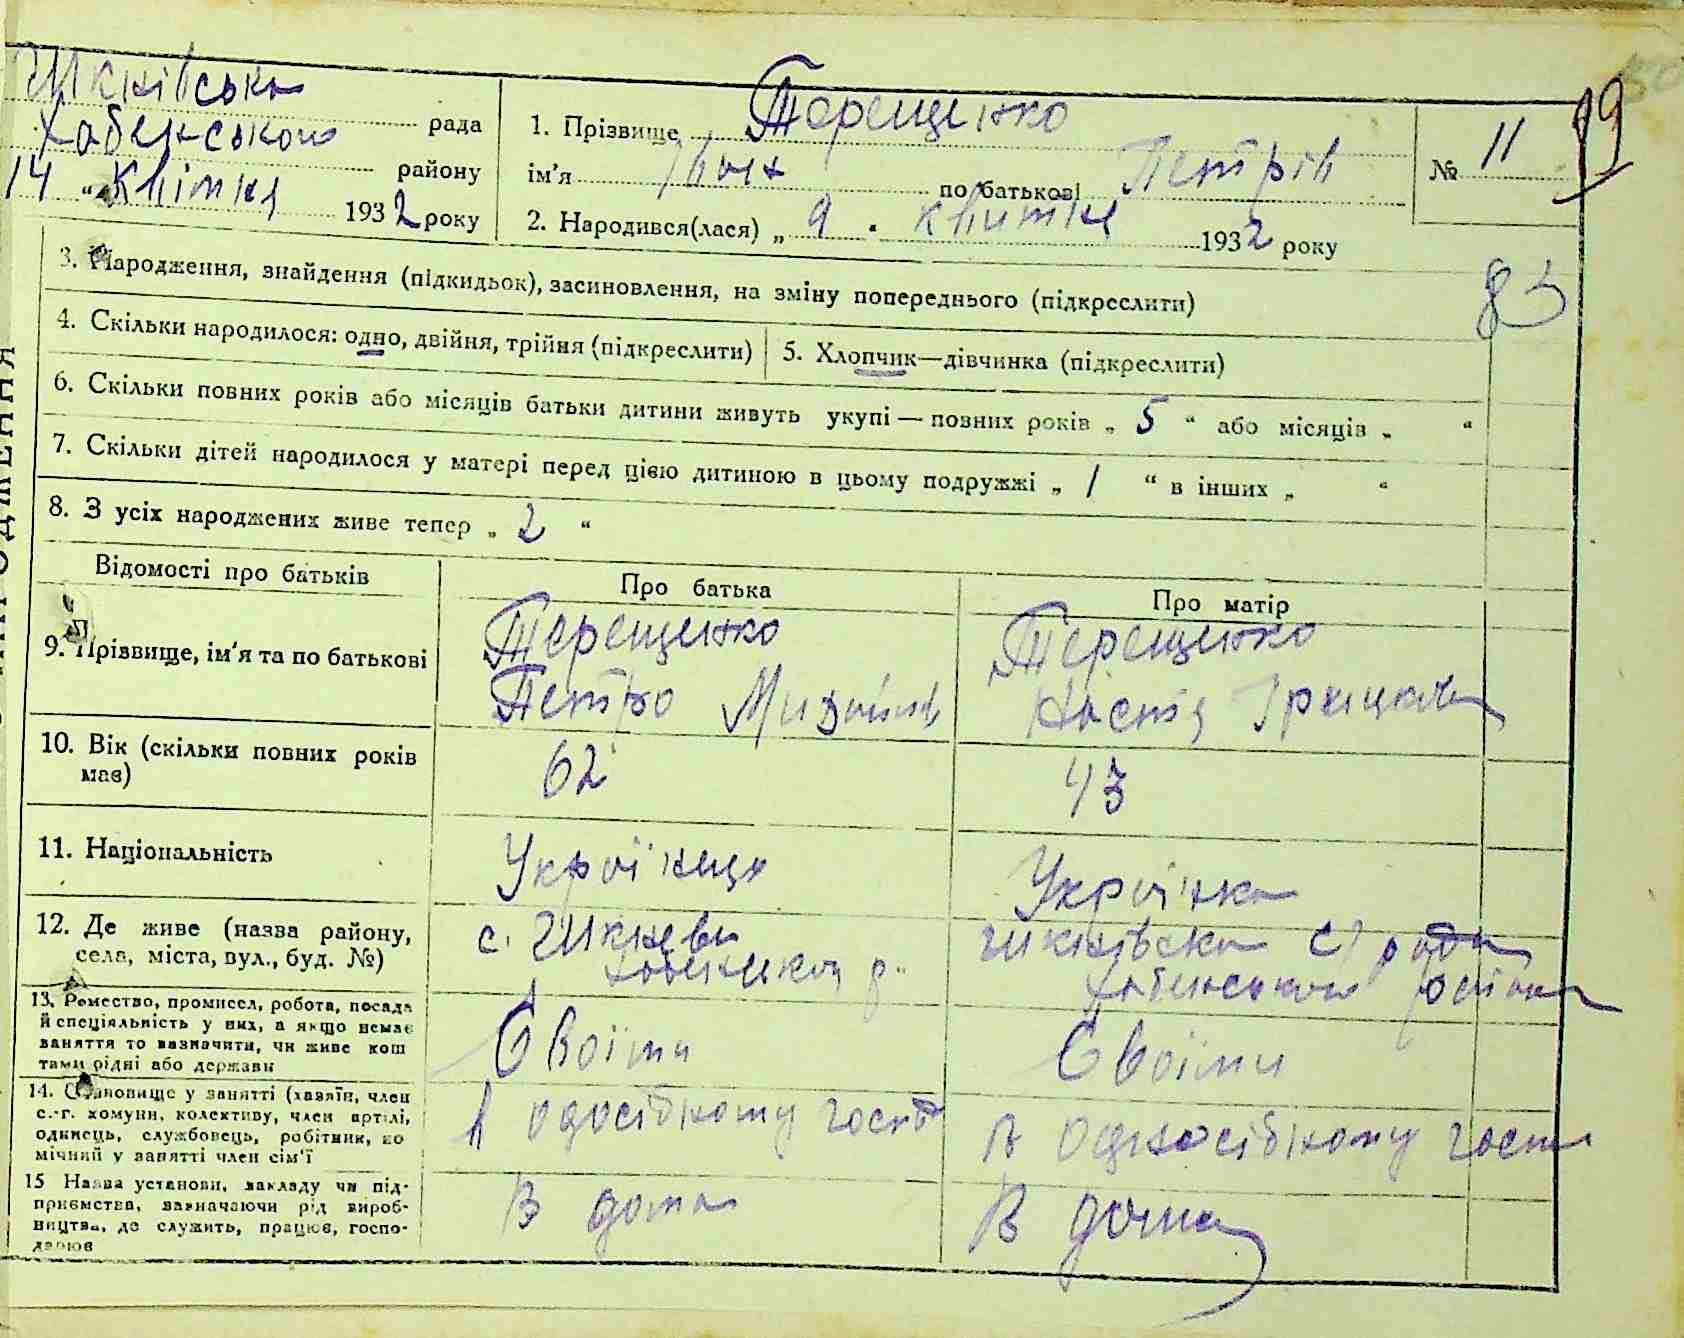 Шкнівська
Хабенського рада
району
14 " Квітня 1932 року
1. Прізвище Терещенко
ім'я Іван по батькові Петрів
2. Народився(лася) „ 9 " квитня 1932 року
№ 11
19
83
3. Народження, знайдення (підкидьок), засиновлення, на зміну попереднього (підкреслити)
4. Скільки народилося: одно, двійня, трійня (підкреслити)
5. Хлопчик—дівчинка (підкреслити)
6. Скільки повних років або місяців батьки дитини живуть укупі — повних років „ 5 " або місяців „ "
7. Скільки дітей народилося у матері перед цією дитиною в цьому подружжі „ 1 " в інших „ "
8. З усіх народжених живе тепер „ 2 "
Відомості про батьків
Про батька
Про матір
9. Прізвище, ім'я та по батькові
Терещенко
Петро
Терещенко
Настя Грицкова
10. Вік (скільки повних років
має)
62
43
11. Національність
Українець
Українка
12. Де живе (назва району,
села, міста, вул., буд. №)
с.
р.
С/рада
Хабенського району
13. Ремество, промисел, робота, посада
й спеціяльність у них, а якщо немає
заняття то вазначити, чи живе кош
тами рідні або держави
Своїми
Своїми
14. Становище у занятті (хазяїн, член
с.-г. комуни, колективу, член артілі,
одинець, службовець, робітник, по
мічний у занятті член сім'ї
в одосібному госп
в односібному госп
15 Назва установи, закладу чи під-
приємства, зазначаючи рід вироб-
ництва, де служить, працює, госпо-
дарює
В дома
В дома